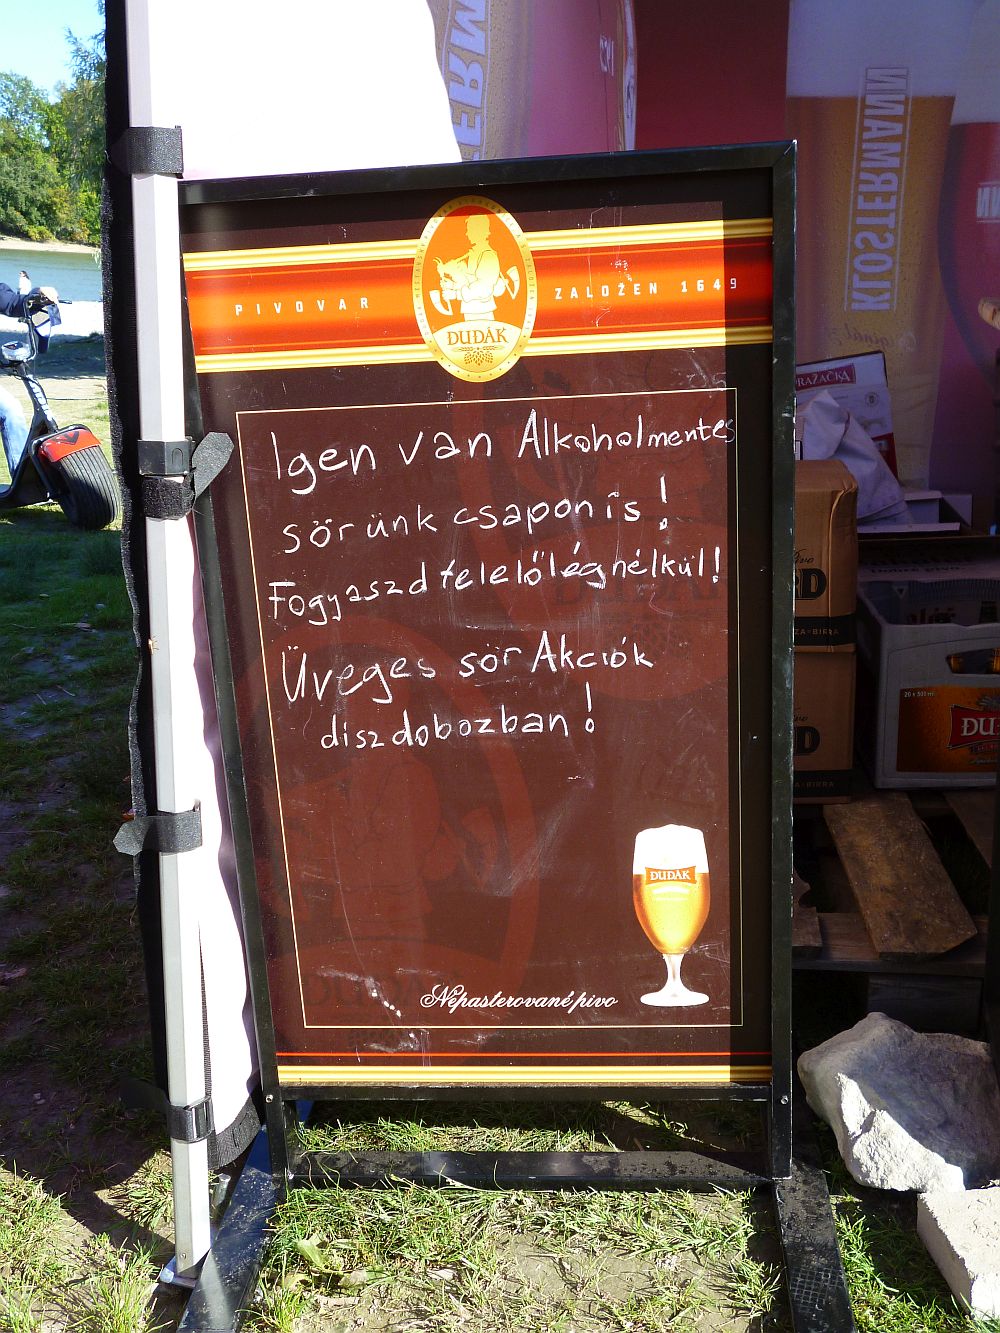 PIVOVAR
ZALOŽEN 1649
DUDÁK
Igen van Alkoholmentes
sörünk csapon is!
Fogyaszd felelőlégnélkül!
Üveges sör Akciók
díszdobozban!
ĐUĐÁK
Nepasterované pivo
KLOSTERMANN
PRAŽAČKA
20 x 500 ml